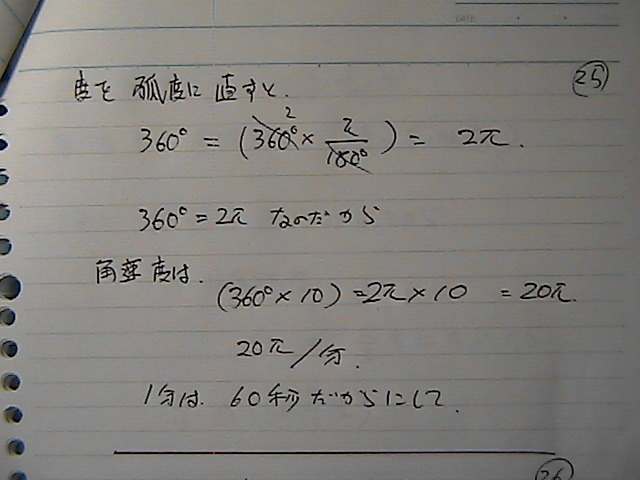 DATE
25
度を 弧度に 直すと.
360° = (360° × π/180°) = 2π.
2
360° = 2π なのだから
角速度は.
(360° × 10) = 2π × 10 = 20π.
20π/分.
1分は 60秒だから にして.
26